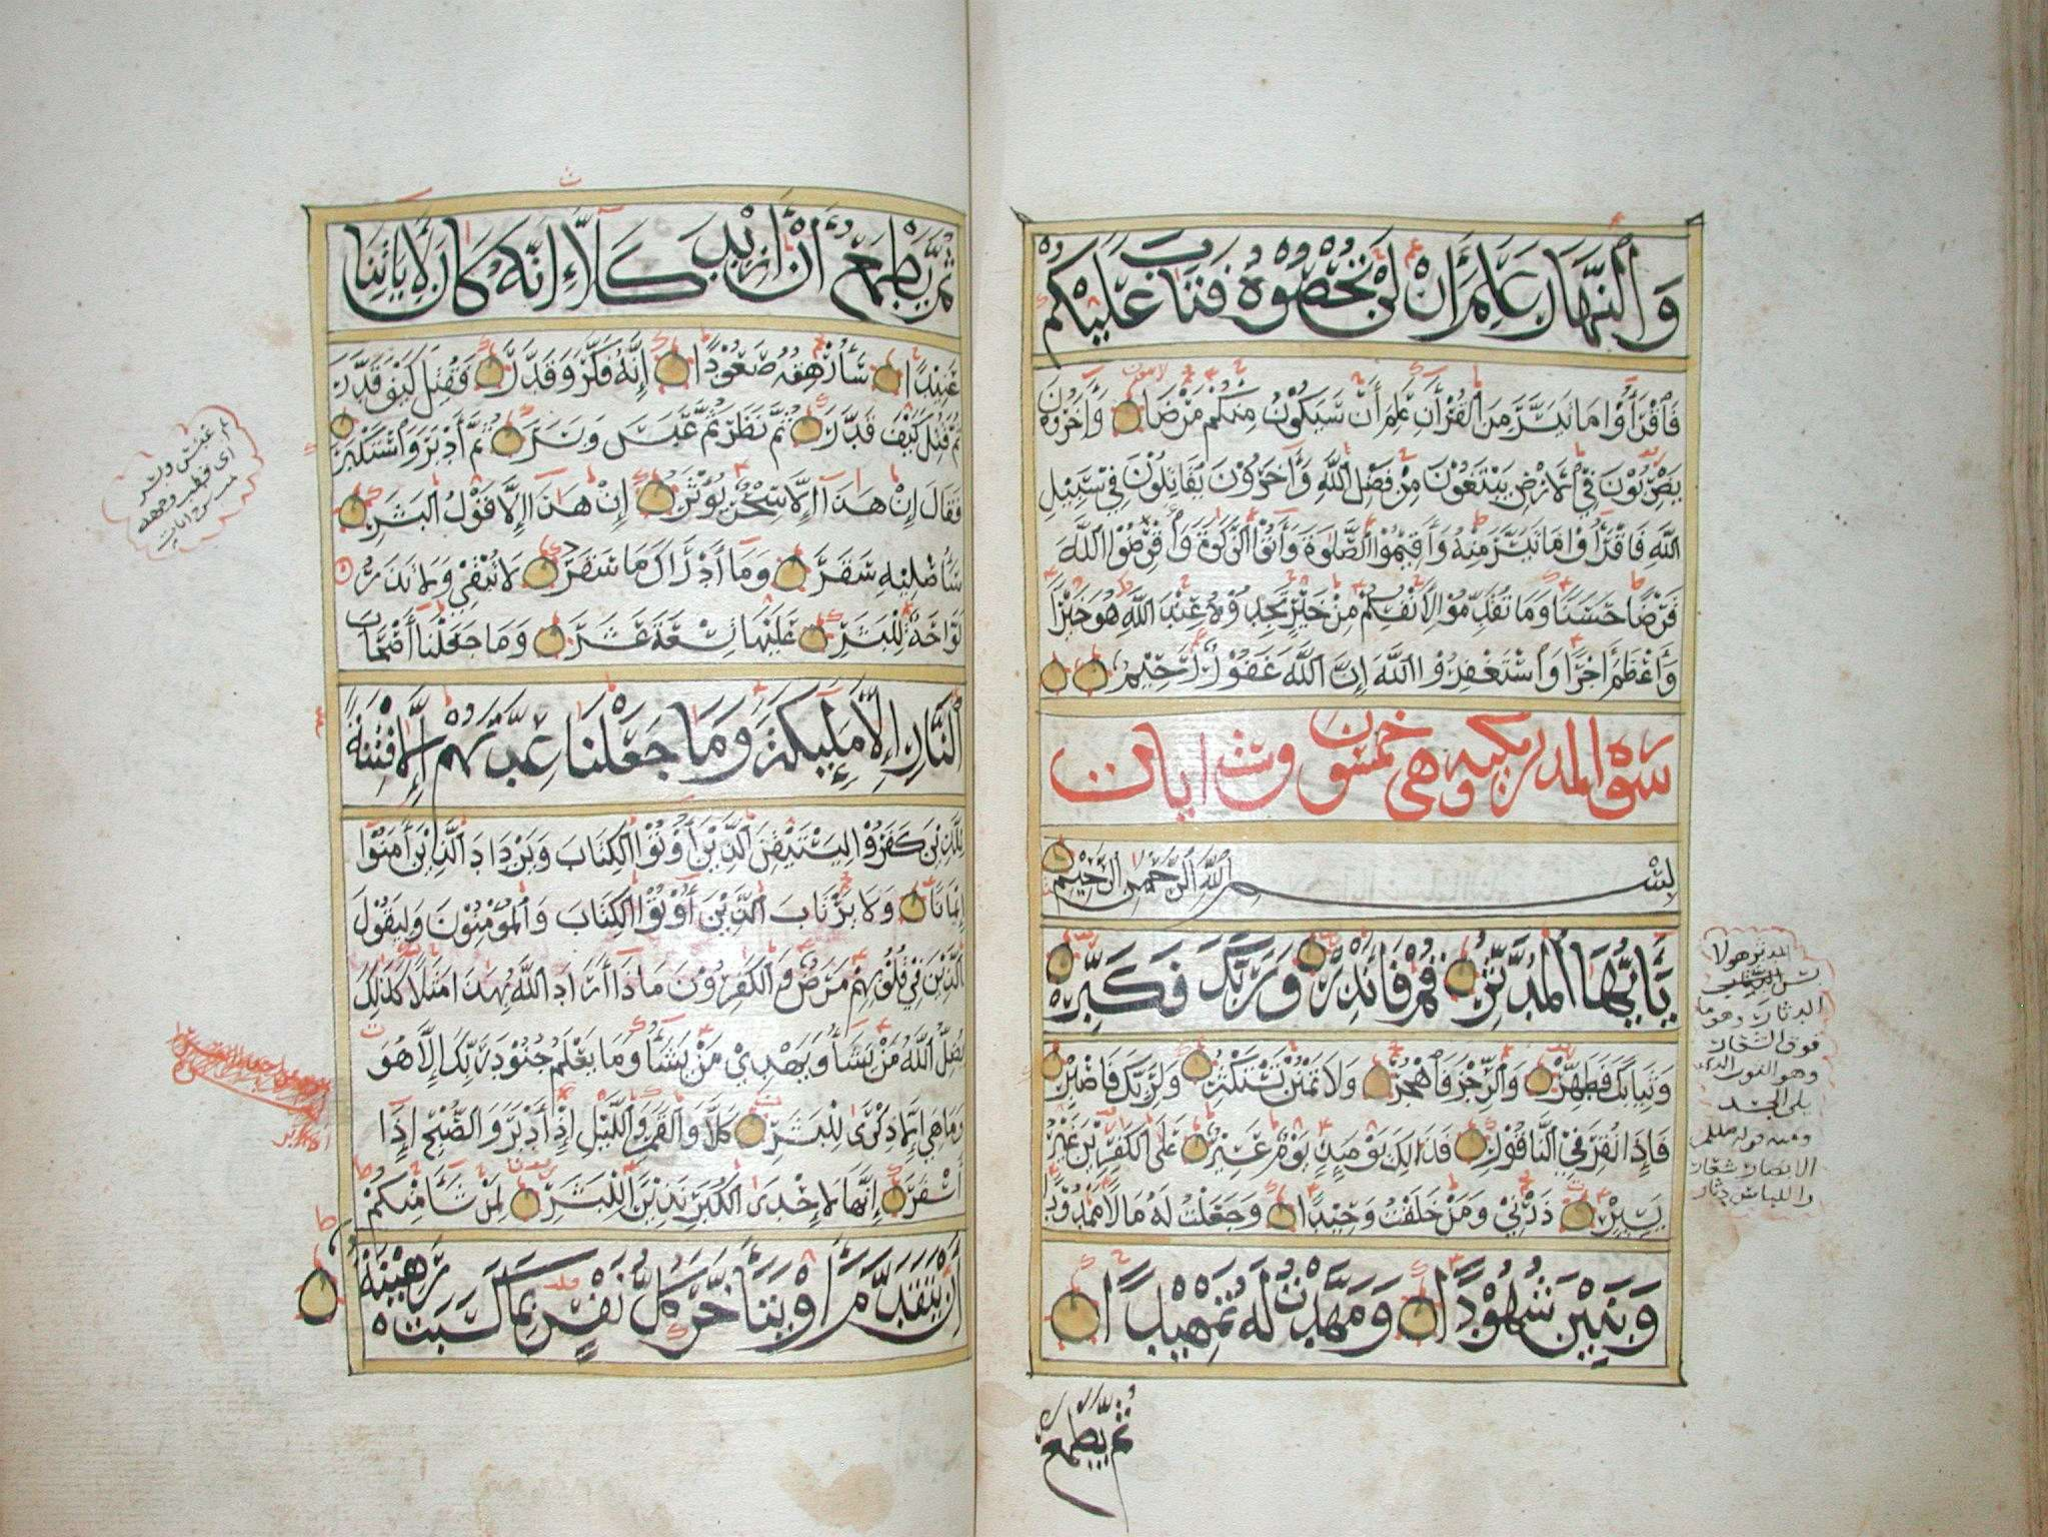 وَٱلنَّهَارَ عَلِمَ أَنْ لَنْ تُحْصُوهُ فَتَابَ عَلَيْكُمْ
فَٱقْرَأُوا مَا تَيَسَّرَ مِنَ ٱلْقُرْأَنِ عَلِمَ أَنْ سَيَكُوْنُ مِنْكُمْ مَرْضَا وَأَخَرُوْنَ
يَضْرِبُوْنَ فِي ٱلأَرْضِ يَبْتَغُوْنَ مِنْ فَضْلِ ٱللَّهِ وَأَخَرُوْنَ يُقَاتِلُوْنَ فِيْ سَبِيْلِ
اللَّهِ فَاقْرَأُوْا مَا تَيَسَّرَ مِنْهُ وَأَقِيْمُوا ٱلصَّلٰوةَ وَأَتُوْا ٱلزَّكٰوةَ وَأَقْرِضُوْا ٱللَّهَ
قَرْضًا حَسَنًا وَمَا تُقَدِّمُوْا لِأَنْفُسِكُمْ مِنْ خَيْرٍ تَجِدُوْهُ عِنْدَ اللَّهِ هُوَ خَيْرًا
وَأَعْظَمَ أَجْرًا وَٱسْتَغْفِرُوْا ٱللَّهَ إِنَّ ٱللَّهَ غَفُوْرٌ رَحِيْمٌ
سورة المدثر مكيه وهي خمسون وست ايات
بِسْمِ ٱللَّهِ ٱلرَّحْمٰنِ ٱلرَّحِيْمِ
يَا أَيُّهَا ٱلْمُدَّثِّرُ قُمْ فَأَنْذِرْ وَرَبَّكَ فَكَبِّرْ
وَثِيَابَكَ فَطَهِّرْ وَٱلرِّجْزَ فَٱهْجُرْ وَلَا تَمْنُنْ تَسْتَكْثِرُ وَلِرَبِّكَ فَاصْبِرْ
فَإِذَا نُقِرَ فِيْ ٱلنَّاقُوْرِ فَذَالِكَ يَوْمَئِذٍ يَوْمٌ عَسِيْرٌ عَلَى ٱلْكَفِرِيْنَ غَيْرُ
يَسِيْرٍ ذَرْنِيْ وَمَنْ خَلَقْتُ وَحِيْدًا وَجَعَلْتُ لَهُ مَالًا مَمْدُوْدًا
وَبَنِيْنَ شُهُوْدًا وَمَهَّدْتُ لَهُ تَمْهِيْدًا
ثُمَّ يَطْمَعُ
المدثر هو لابس
الدثار وهو ما
فوق الشعار
وهو الثوب الذي
يلي الجسد
ومنه قوله عليه
الانصار شعار
والناس دثار
ثُمَّ يَطْمَعُ أَنْ أَزِيْدَ كَلَّا إِنَّهُ كَانَ لِأَيَاتِنَا
عَنِيْدًا سَأُرْهِقُهُ صَعُوْدًا إِنَّهُ فَكَّرَ وَقَدَّرَ فَقُتِلَ كَيْفَ قَدَّرَ
ثُمَّ قُتِلَ كَيْفَ قَدَّرَ ثُمَّ نَظَرَ ثُمَّ عَبَسَ وَبَسَرَ ثُمَّ أَدْبَرَ وَٱسْتَكْبَرَ
فَقَالَ إِنْ هَذَا إِلَّا سِحْرٌ يُؤْثَرُ إِنْ هَذَا إِلَّا قَوْلُ ٱلْبَشَرِ
سَأُصْلِيْهِ سَقَرَ وَمَا أَدْرَاكَ مَا سَقَرُ لَا تُبْقِيْ وَلَا تَذَرُ
لَوَّاحَةٌ لِلْبَشَرِ عَلَيْهَا تِسْعَةَ عَشَرَ وَمَا جَعَلْنَا أَصْحَابَ
ٱلنَّارِ إِلَّا مَلٰئِكَةً وَمَا جَعَلْنَا عِدَّتَهُمْ إِلَّا فِتْنَةً
لِلَّذِيْنَ كَفَرُوْا لِيَسْتَيْقِنَ ٱلَّذِيْنَ أُوْتُوْا ٱلْكِتَابَ وَيَزْدَادَ ٱلَّذِيْنَ أَمَنُوْا
إِيْمَانًا وَلَا يَرْتَابَ ٱلَّذِيْنَ أُوْتُوْا ٱلْكِتَابَ وَٱلْمُؤْمِنُوْنَ وَلِيَقُوْلَ
ٱلَّذِيْنَ فِيْ قُلُوْبِهِمْ مَرَضٌ وَٱلْكَفِرُوْنَ مَاذَا أَرَادَ ٱللَّهُ بِهَذَا مَثَلًا كَذَلِكَ
يُضِلُّ ٱللَّهُ مَنْ يَشَاءُ وَيَهْدِيْ مَنْ يَشَاءُ وَمَا يَعْلَمُ جُنُوْدَ رَبِّكَ إِلَّا هُوَ
وَمَا هِيَ إِلَّا ذِكْرَى لِلْبَشَرِ كَلَّا وَٱلْقَمَرِ وَٱللَّيْلِ إِذْ أَدْبَرَ وَٱلصُّبْحِ إِذَا
أَسْفَرَ إِنَّهَا لَإِحْدَى ٱلْكُبَرِ نَذِيْرًا لِلْبَشَرِ لِمَنْ شَاءَ مِنْكُمْ
أَنْ يَتَقَدَّمَ أَوْ يَتَأَخَّرَ كُلُّ نَفْسٍ بِمَا كَسَبَتْ رَهِيْنَةٌ
عبس وبسر
اي قطب وجهه